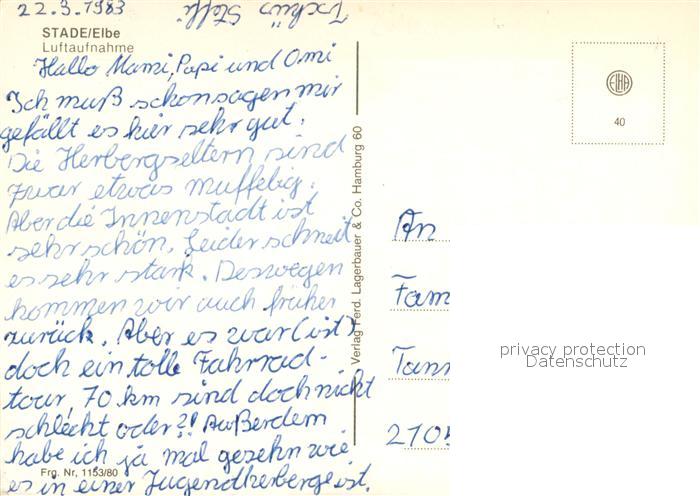 22.3.1983
Tschüs Steffi
STADE/Elbe
Luftaufnahme
Hallo Mami, Papi und Omi
Ich muß schonsagen mir
gefällt es hier sehr gut.
Die Herbergseltern sind
zwar etwas muffelig.
Aber die Innenstadt ist
sehr schön. Leider schneit
es sehr stark. Deswegen
kommen wir auch früher
zurück. Aber es war (ist)
doch ein tolle Fahrrad-
tour, 70 km sind doch nicht
schlecht oder?! Außerdem
habe ich ja mal gesehn wie
es in einer Jugendherberge ist.
Frg. Nr. 1153/80
Verlag Ferd. Lagerbauer & Co. Hamburg 60
40
An
Fam
Tann
2105
privacy protection
Datenschutz